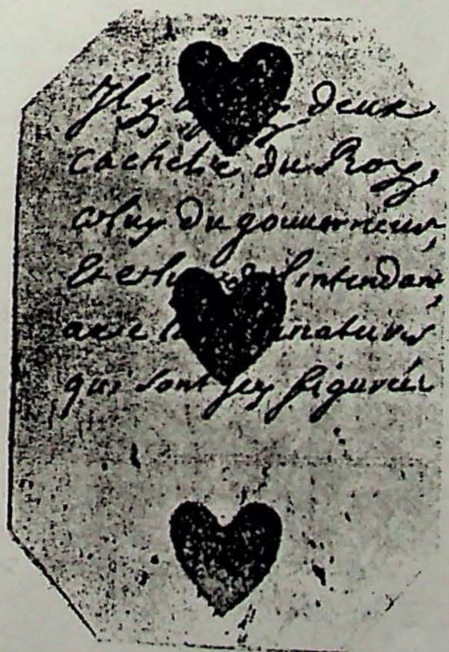 Il y a deux
cachets du Roy,
celuy du gouverneur,
Et celuy de l'intendant,
avec les signatures
qui sont icy figurées